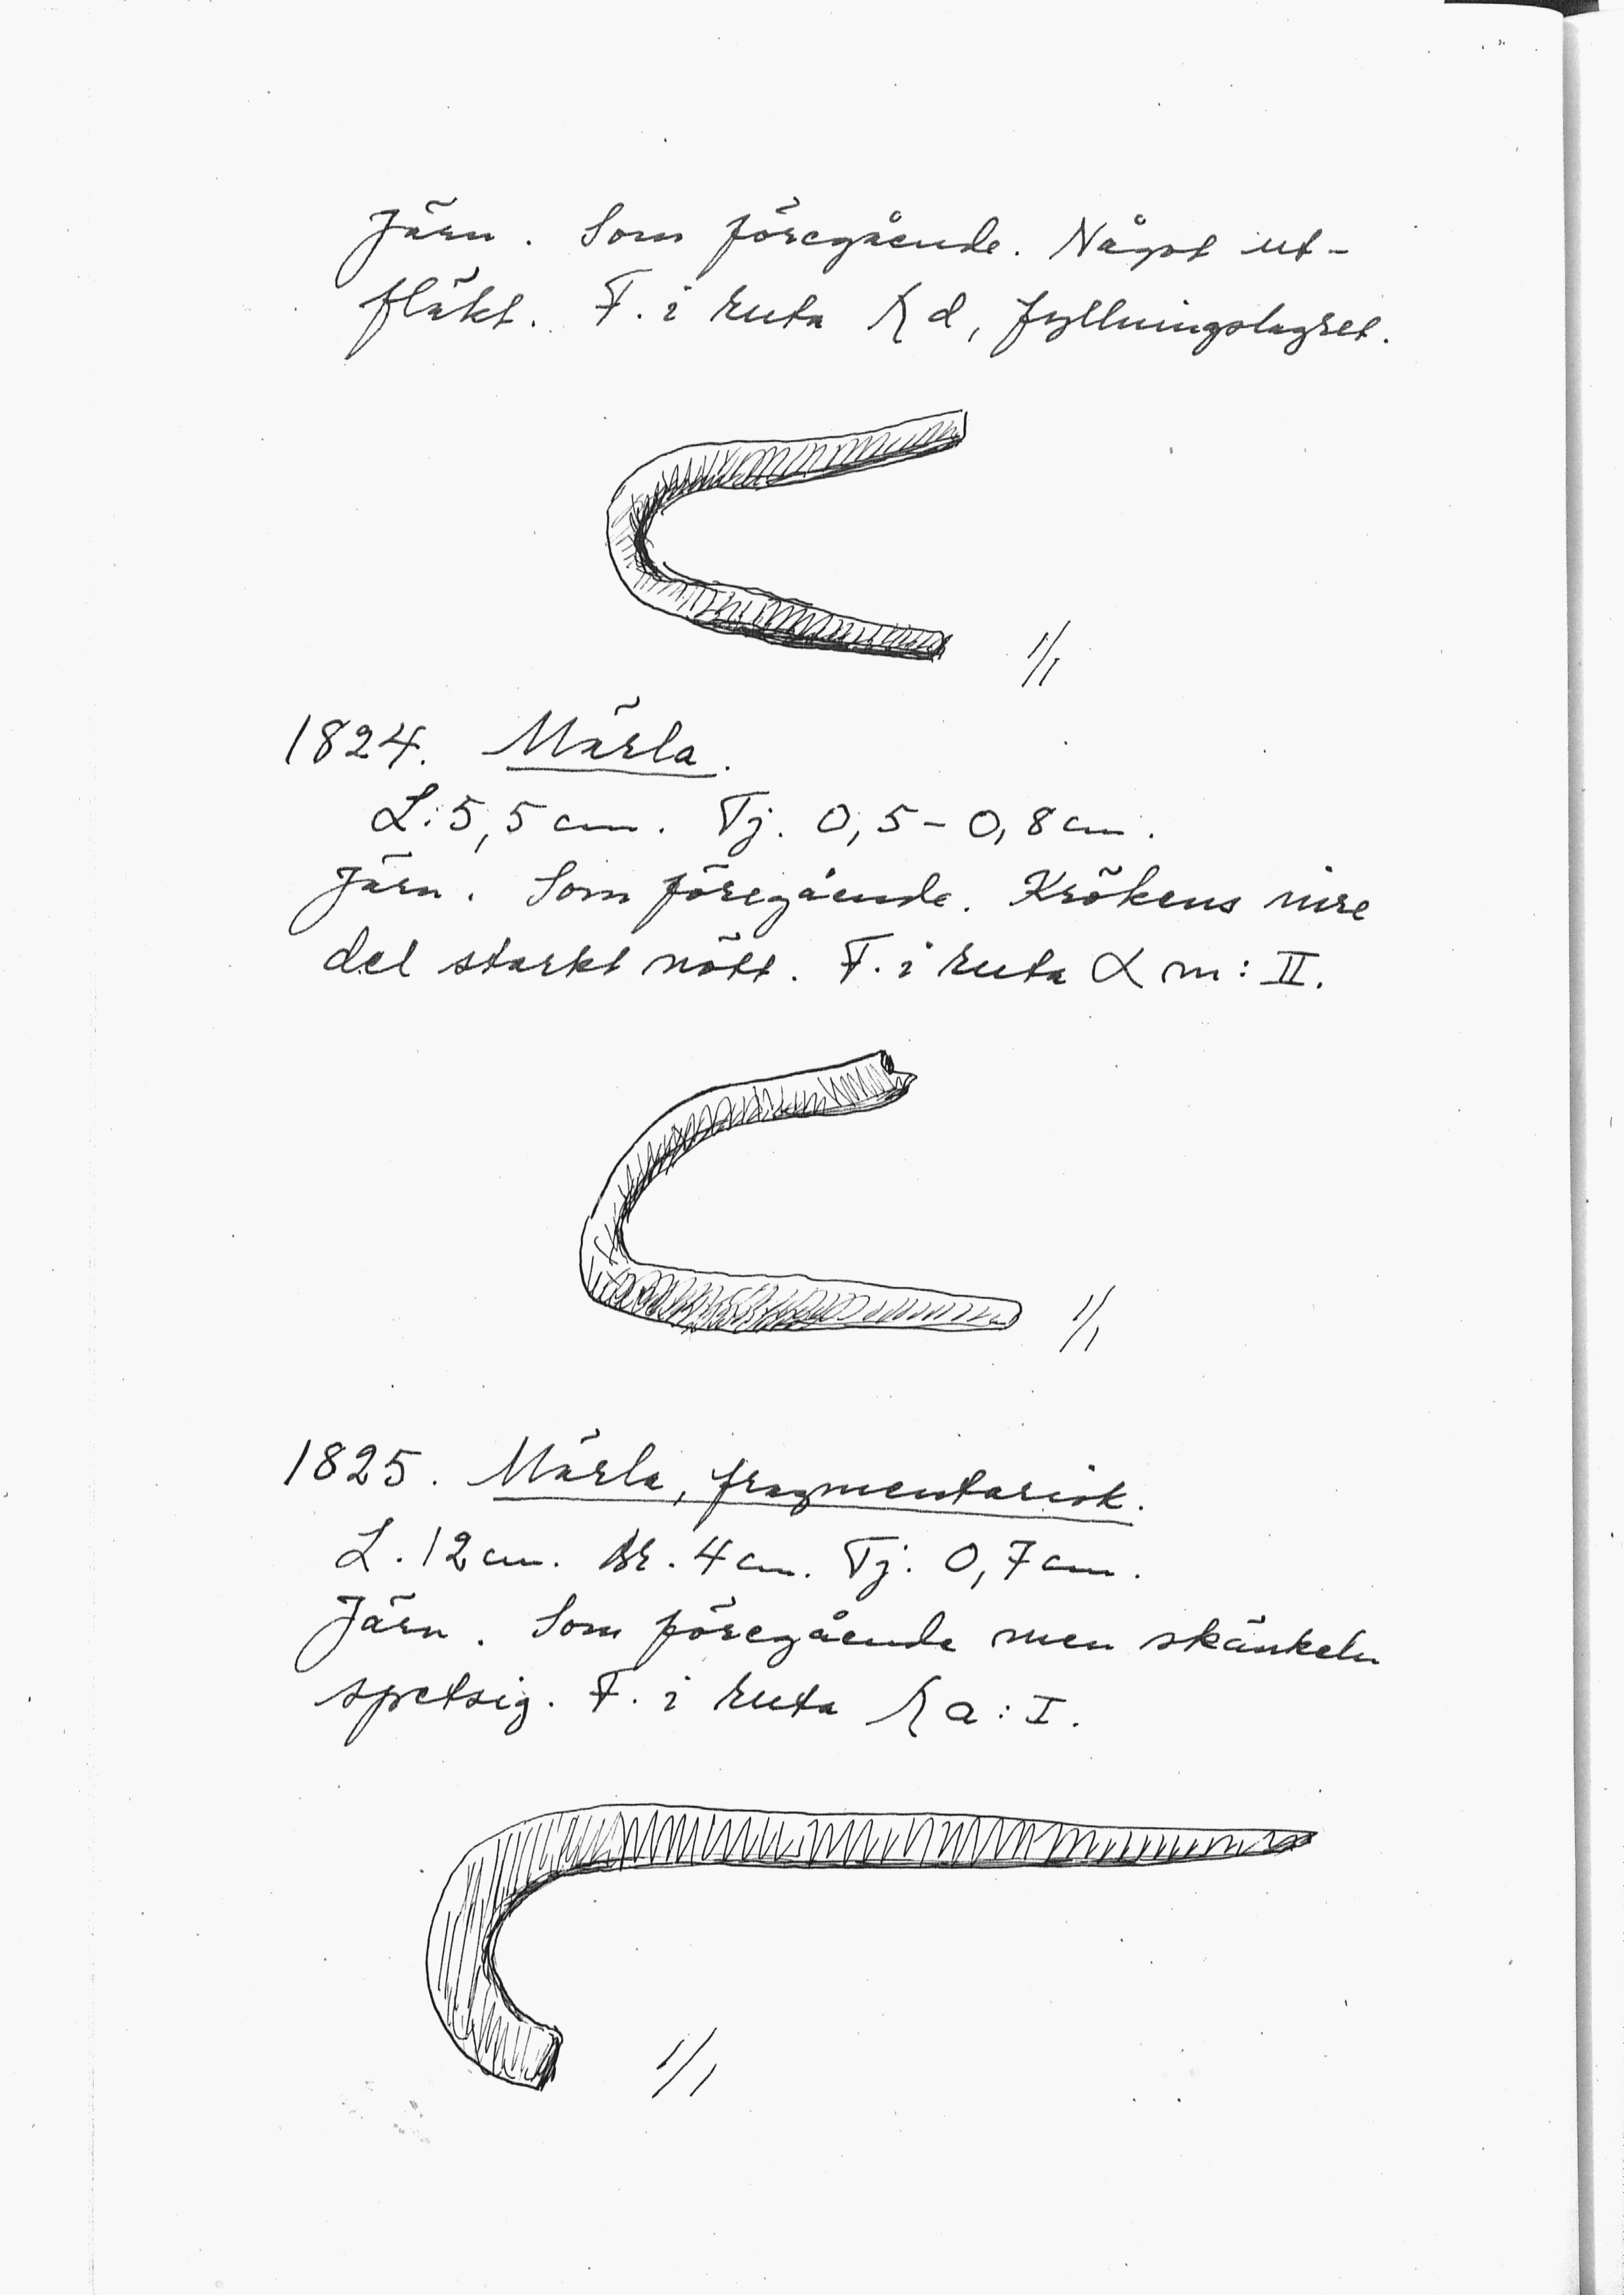 Järn. Som föregående. Något ut-
fläkt. F. i ruta d, fyllningslagret.
1/1
1824. Märla.
L: 5,5 cm. Tj. 0,5-0,8 cm.
Järn. Som föregående. Krökens inre
del starkt nött. F. i ruta α m: II.
1/1
1825. Märla, fragmentarisk.
L. 12 cm. Br. 4 cm. Tj. 0,7 cm.
Järn. Som föregående men skänkeln
spetsig. F. i ruta a: I.
1/1